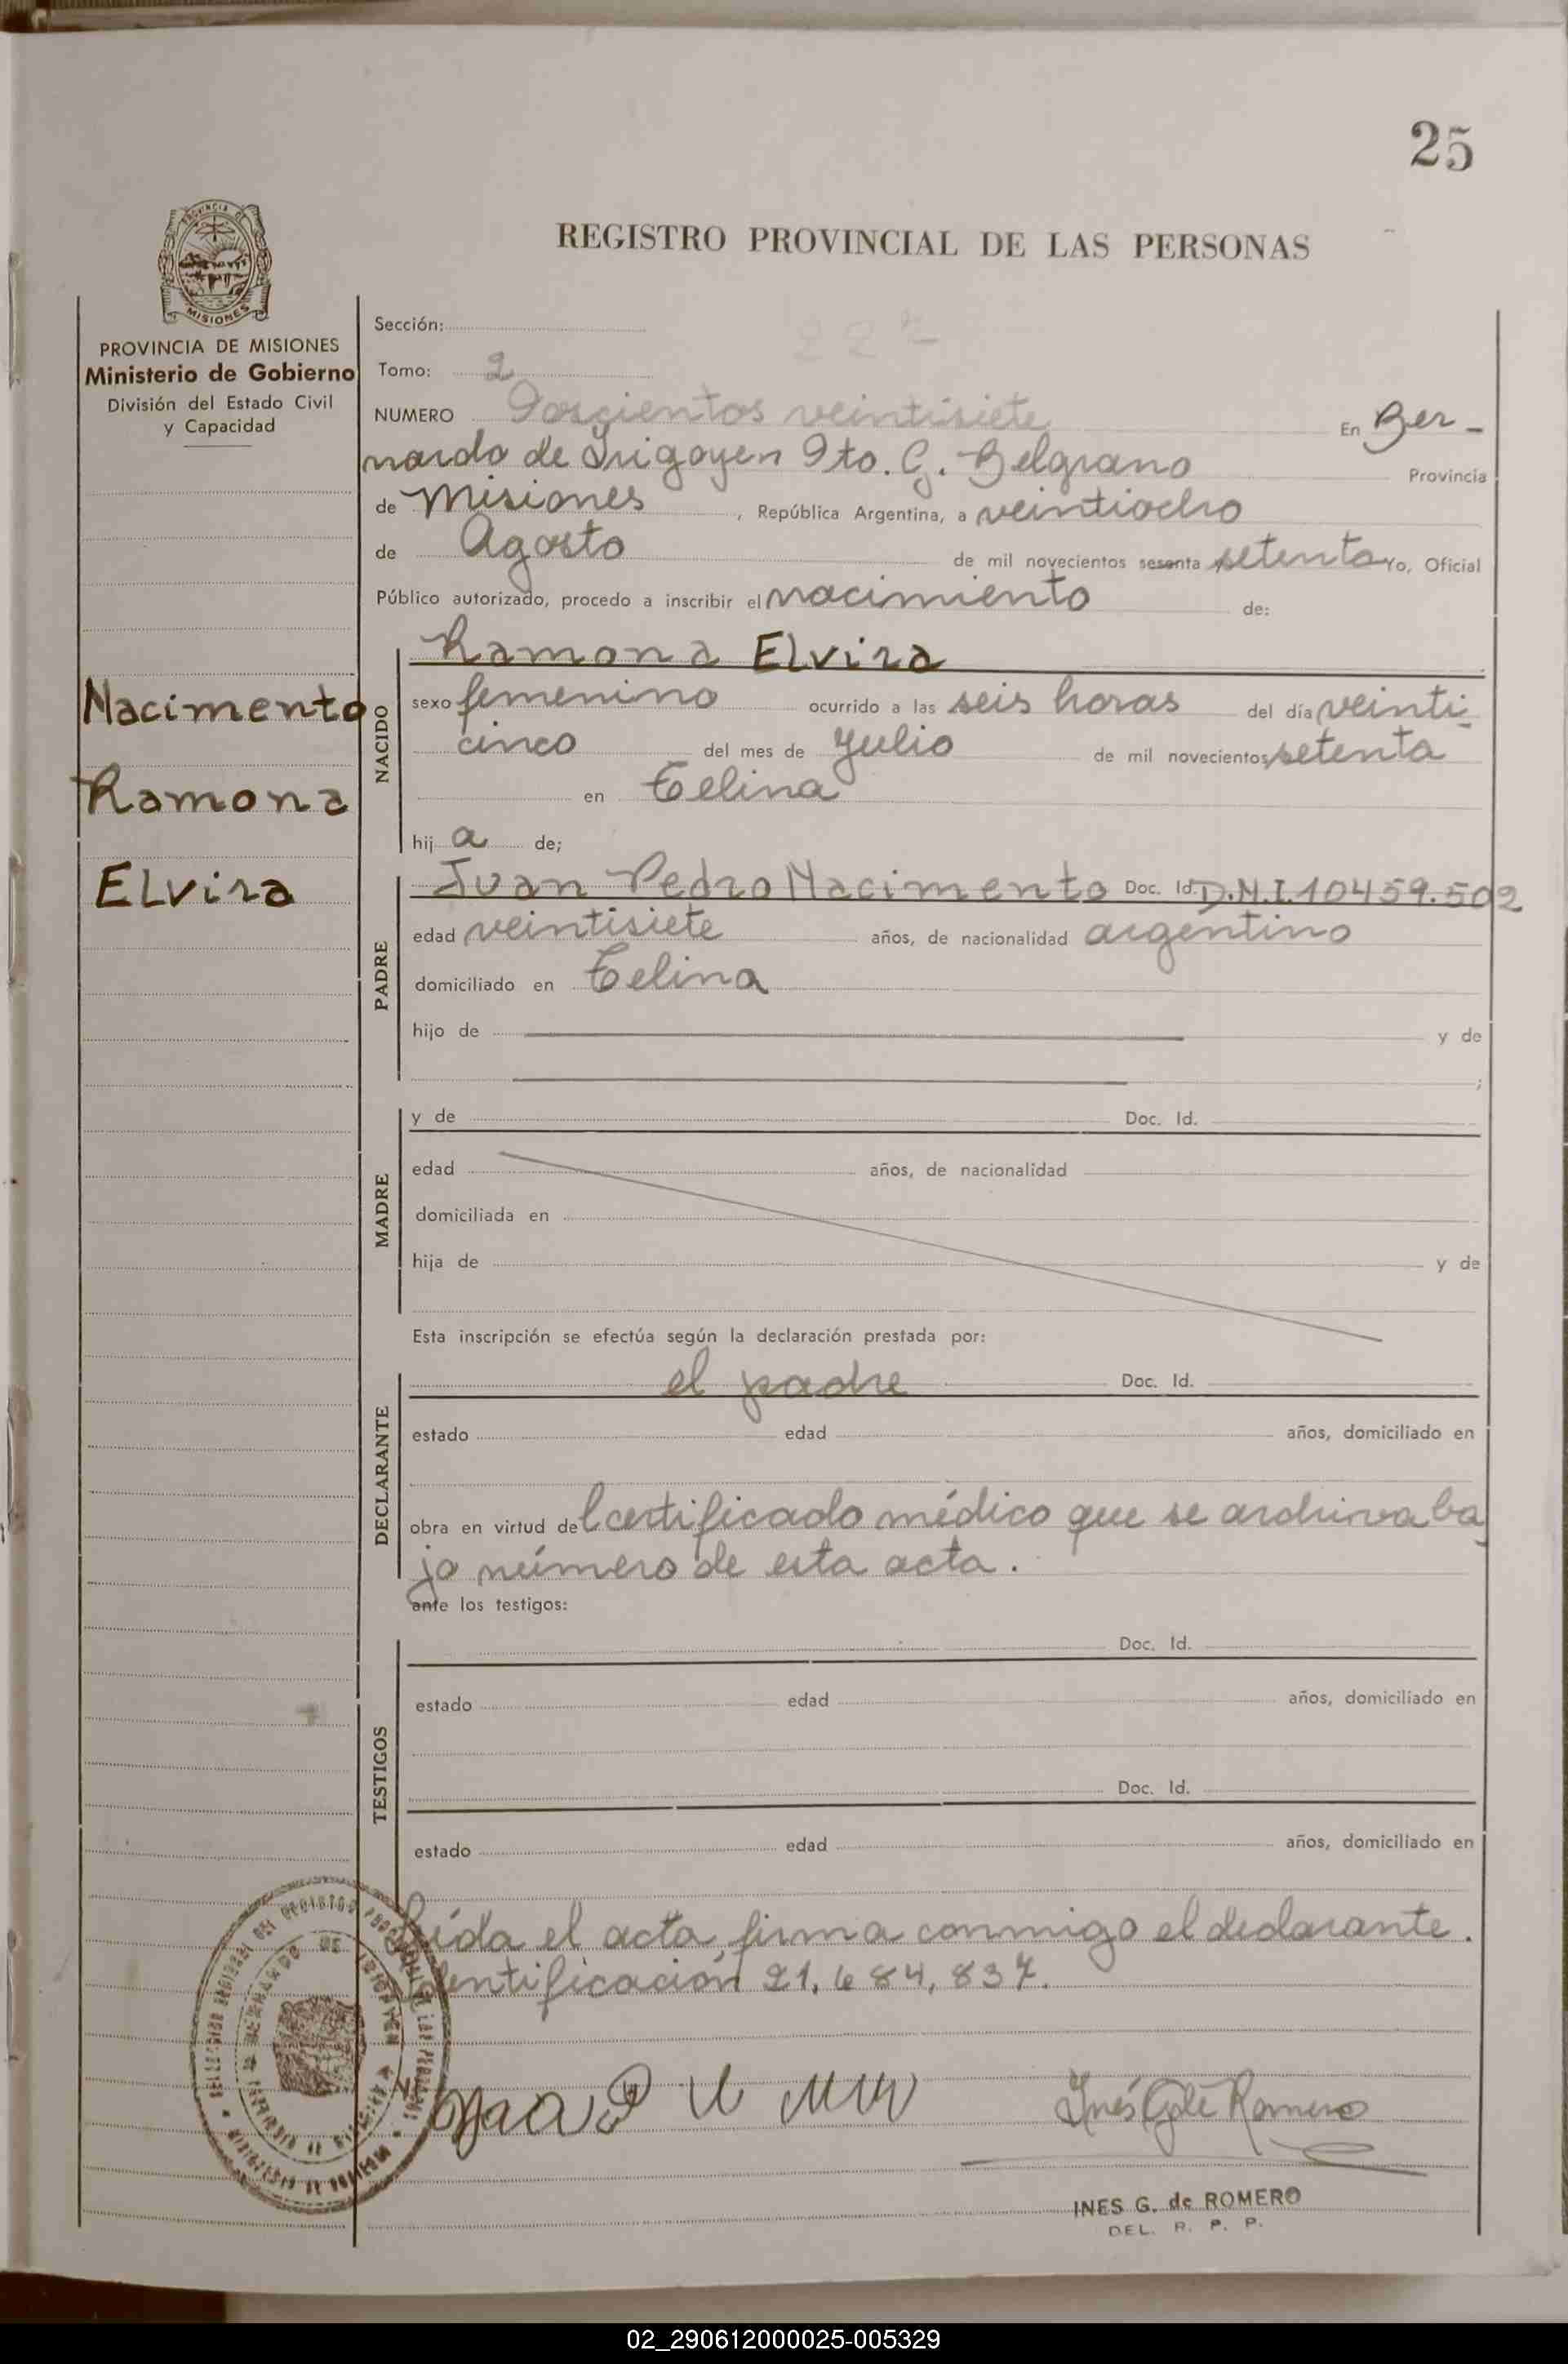 25
PROVINCIA DE
MISIONES
REGISTRO PROVINCIAL DE LAS PERSONAS
PROVINCIA DE MISIONES
Ministerio de Gobierno
División del Estado Civil
y Capacidad
Nacimento
Ramona
Elvira
Sección:
227
Tomo: 2
NUMERO Doscientos veintisiete En Ber-
nardo de Irigoyen Dto. G. Belgrano Provincia
de Misiones, República Argentina, a veintiocho
de Agosto de mil novecientos sesenta y setenta Yo, Oficial
Público autorizado, procedo a inscribir el nacimiento de:
NACIDO
Ramona Elvira
sexo femenino ocurrido a las seis horas del día veinti-
cinco del mes de Julio de mil novecientos setenta
en Celina
hij a de;
PADRE
Juan Pedro Nacimento Doc. Id. D.N.I. 10459.502
edad veintisiete años, de nacionalidad argentino
domiciliado en Celina
hijo de y de
;
MADRE
y de Doc. Id.
edad años, de nacionalidad
domiciliada en
hija de y de
Esta inscripción se efectúa según la declaración prestada por:
DECLARANTE
el padre Doc. Id.
estado edad años, domiciliado en
obra en virtud del certificado médico que se archiva ba
jo número de esta acta.
ante los testigos:
TESTIGOS
Doc. Id.
estado edad años, domiciliado en
Doc. Id.
estado edad años, domiciliado en
Leída el acta, firma conmigo el declarante.
Identificación 21.684.837.
Inés G. de Romero
INES G. de ROMERO
DEL. R. P. P.
02_290612000025-005329